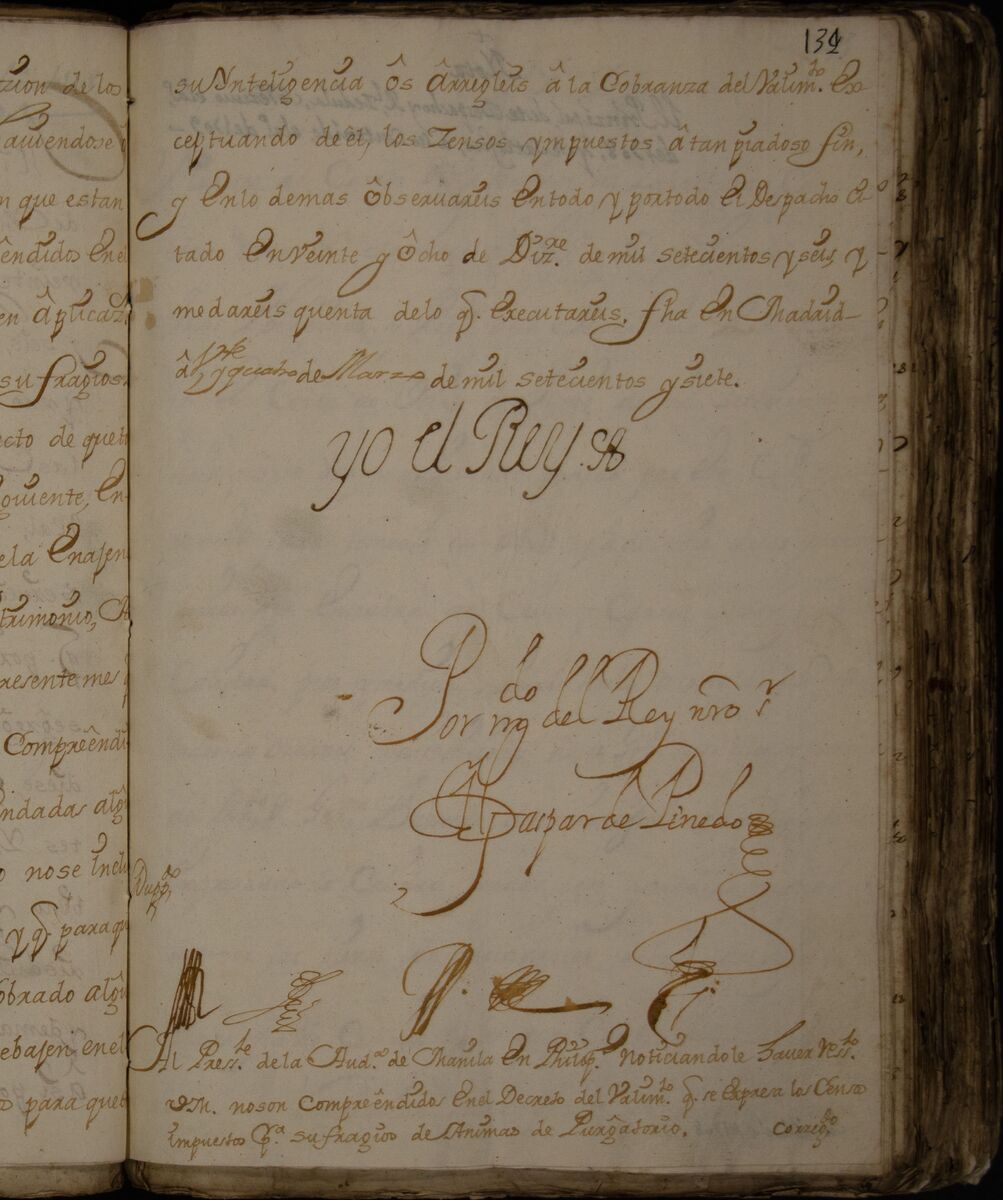 134
zion de los
auiendose
n que estan
êndidos En el
en âplicaz.
su fragios
ecto de que
guiente, En
ela Enajen
trimonio,
resente mes
Compreêndi
ndadas algu
o no se Inclu
y q̃ para q
obrado algu
ebajen en el
para que
su Ynteligencia ôs ârregleis â la Cobranza del Valim.to Ex-
ceptuando de êl, los Zensos ympuestos â tan piadoso fin,
y En lo demas ôbseruareis En todo y por todo El Despacho Ci-
tado En Veinte y ôcho de Diz.re de mil setecientos y seis, y
me dareis quenta de lo q̃. Executareis, fha En Madrid-
â Vte y quatro de Marzo de mil setecientos y siete.
yo el Rey
Por mdo del Rey nro sr
Gaspar de Pinedo
Dupp.do
Al Press.te de la Aud.a de Manila En Philip.s Noticiandole hauer ress.to
V.M. no son Compreêndidos En el Decreto del Valim.to q̃. se Expresa los Censos
Impuestos p.a sufragios de Animas de Purgatorio. Correg.do